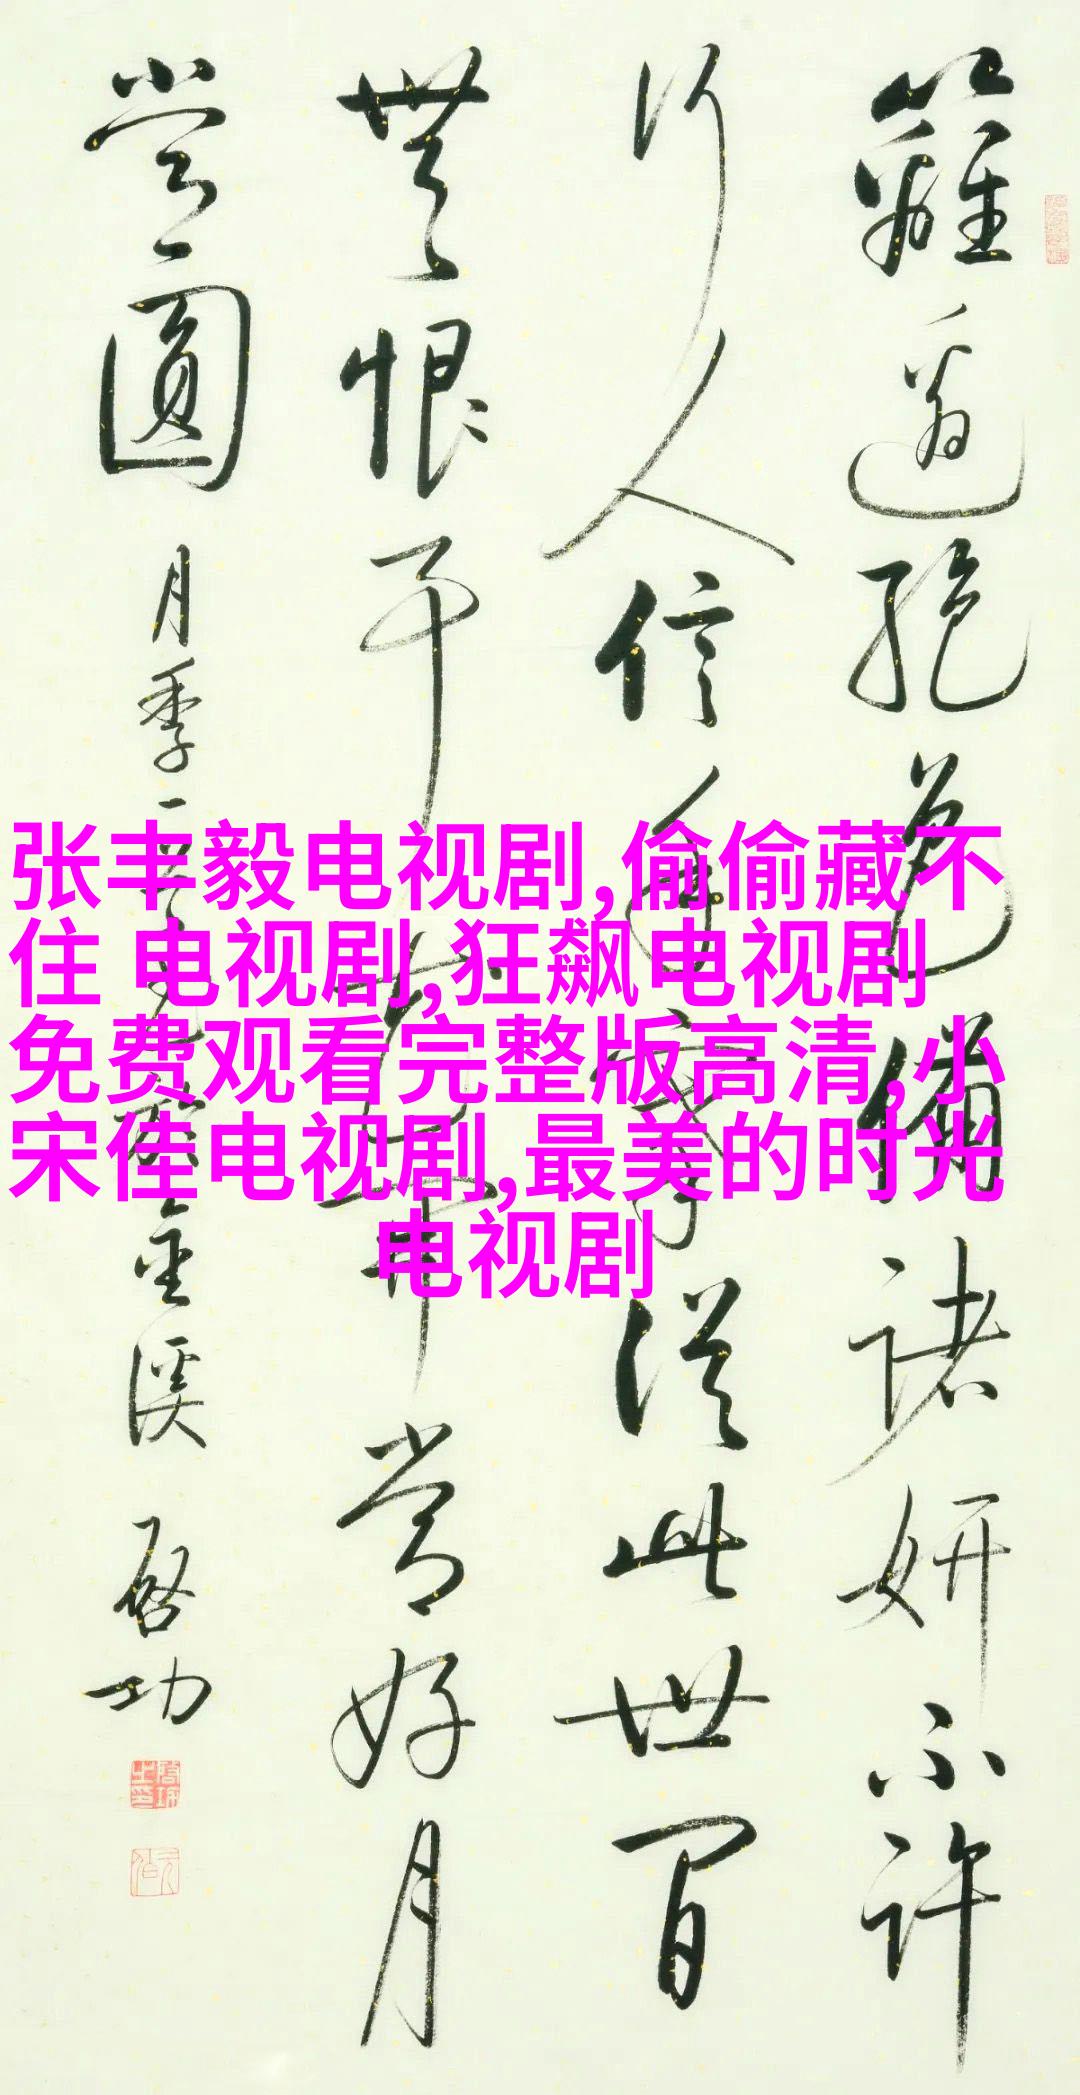 张丰毅电视剧,偷偷藏不
住 电视剧,狂飙电视剧
免费观看完整版高清,小
宋佳电视剧,最美的时光
电视剧
籬邊絕色備諸妍不許
行人信手從此世間
無恨常好月
常圓 月季一金溪 啟功